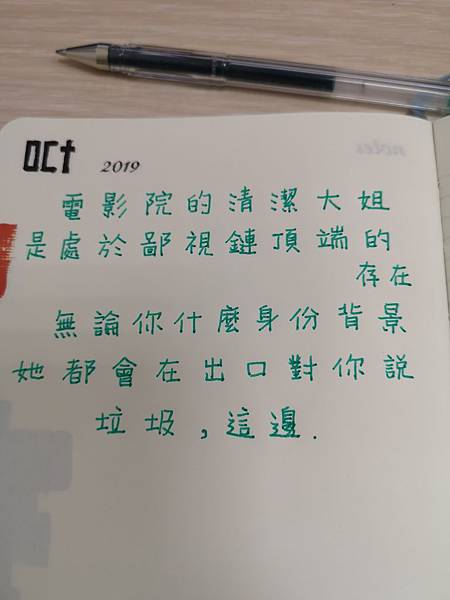 Oct 2019
notes
電影院的清潔大姐
是處於鄙視鏈頂端的
存在
無論你什麼身份背景
她都會在出口對你說
垃圾，這邊.